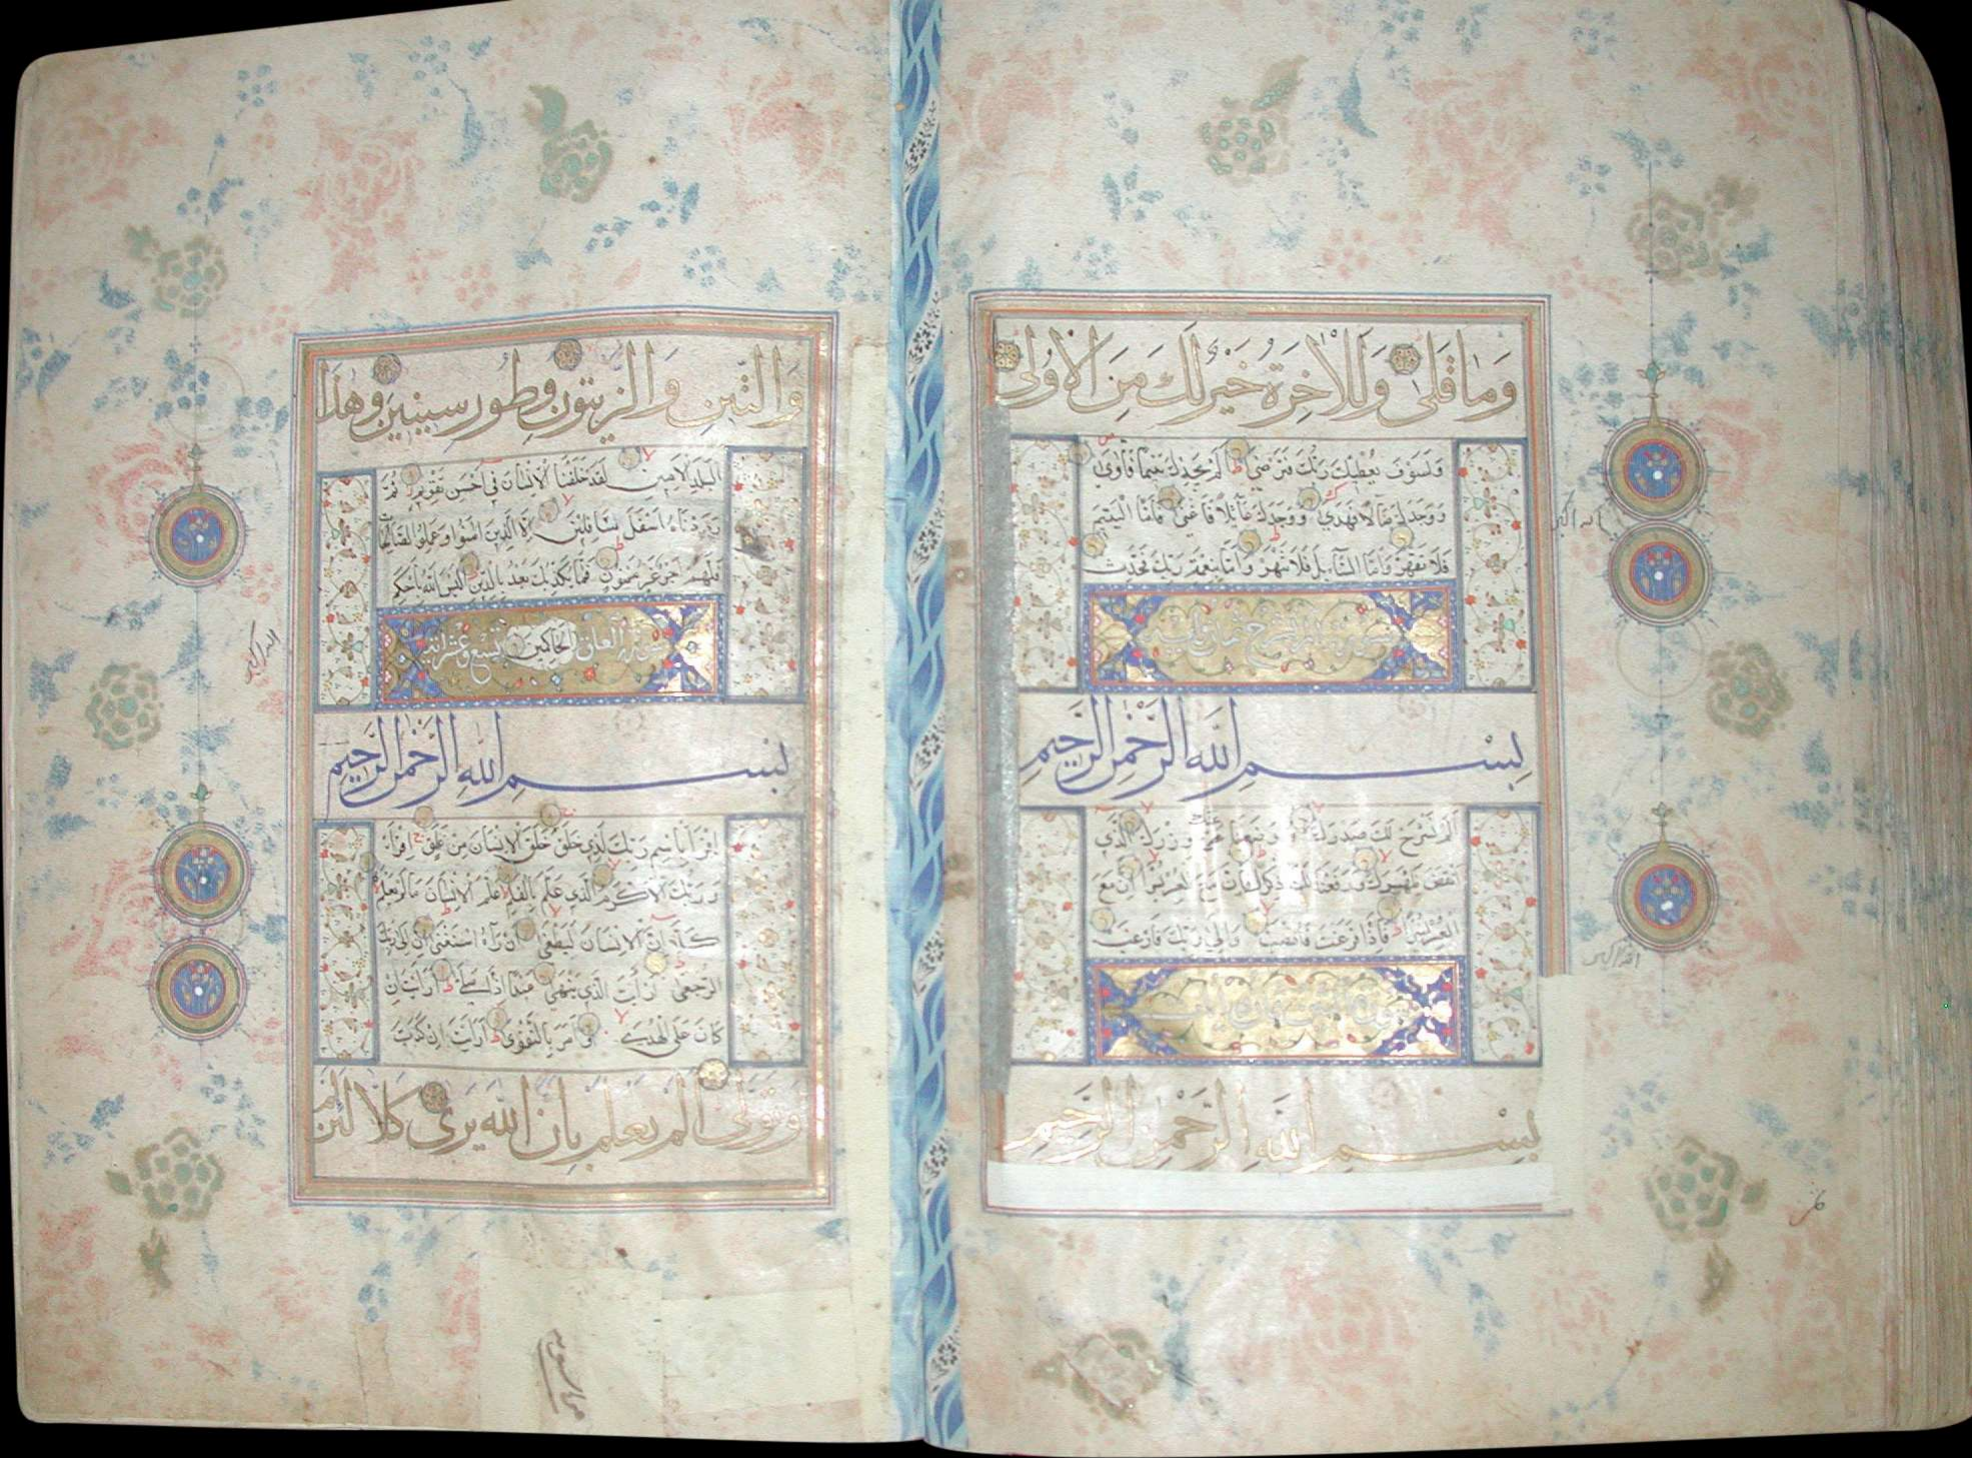 وَمَا قَلَى وَلَلْآخِرَةُ خَيْرٌ لَكَ مِنَ الْأُولَى
وَلَسَوْفَ يُعْطِيكَ رَبُّكَ فَتَرْضَى أَلَمْ يَجِدْكَ يَتِيمًا فَآوَى
وَوَجَدَكَ ضَالًّا فَهَدَى وَوَجَدَكَ عَائِلًا فَأَغْنَى فَأَمَّا الْيَتِيمَ
فَلَا تَقْهَرْ وَأَمَّا السَّائِلَ فَلَا تَنْهَرْ وَأَمَّا بِنِعْمَةِ رَبِّكَ فَحَدِّثْ
بِسْمِ اللَّهِ الرَّحْمَنِ الرَّحِيمِ
أَلَمْ نَشْرَحْ لَكَ صَدْرَكَ وَوَضَعْنَا عَنْكَ وِزْرَكَ الَّذِي
أَنْقَضَ ظَهْرَكَ وَرَفَعْنَا لَكَ ذِكْرَكَ فَإِنَّ مَعَ الْعُسْرِ يُسْرًا إِنَّ مَعَ
الْعُسْرِ يُسْرًا فَإِذَا فَرَغْتَ فَانْصَبْ وَإِلَى رَبِّكَ فَارْغَبْ
بِسْمِ اللَّهِ الرَّحْمَنِ الرَّحِيمِ
الله اكبر
الله اكبر
وَالتِّينِ وَالزَّيْتُونِ وَطُورِ سِينِينَ وَهَذَا
الْبَلَدِ الْأَمِينِ لَقَدْ خَلَقْنَا الْإِنْسَانَ فِي أَحْسَنِ تَقْوِيمٍ ثُمَّ
رَدَدْنَاهُ أَسْفَلَ سَافِلِينَ إِلَّا الَّذِينَ آمَنُوا وَعَمِلُوا الصَّالِحَاتِ
فَلَهُمْ أَجْرٌ غَيْرُ مَمْنُونٍ فَمَا يُكَذِّبُكَ بَعْدُ بِالدِّينِ أَلَيْسَ اللَّهُ بِأَحْكَمِ
سورة العلق الْحَاكِمِينَ تسع عشر آية
بِسْمِ اللَّهِ الرَّحْمَنِ الرَّحِيمِ
اقْرَأْ بِاسْمِ رَبِّكَ الَّذِي خَلَقَ خَلَقَ الْإِنْسَانَ مِنْ عَلَقٍ اقْرَأْ
وَرَبُّكَ الْأَكْرَمُ الَّذِي عَلَّمَ بِالْقَلَمِ عَلَّمَ الْإِنْسَانَ مَا لَمْ يَعْلَمْ
كَلَّا إِنَّ الْإِنْسَانَ لَيَطْغَى أَنْ رَآهُ اسْتَغْنَى إِنَّ إِلَى رَبِّكَ
الرُّجْعَى أَرَأَيْتَ الَّذِي يَنْهَى عَبْدًا إِذَا صَلَّى أَرَأَيْتَ إِنْ
كَانَ عَلَى الْهُدَى أَوْ أَمَرَ بِالتَّقْوَى أَرَأَيْتَ إِنْ كَذَّبَ
وَتَوَلَّى أَلَمْ يَعْلَمْ بِأَنَّ اللَّهَ يَرَى كَلَّا لَئِنْ لَمْ
الله اكبر